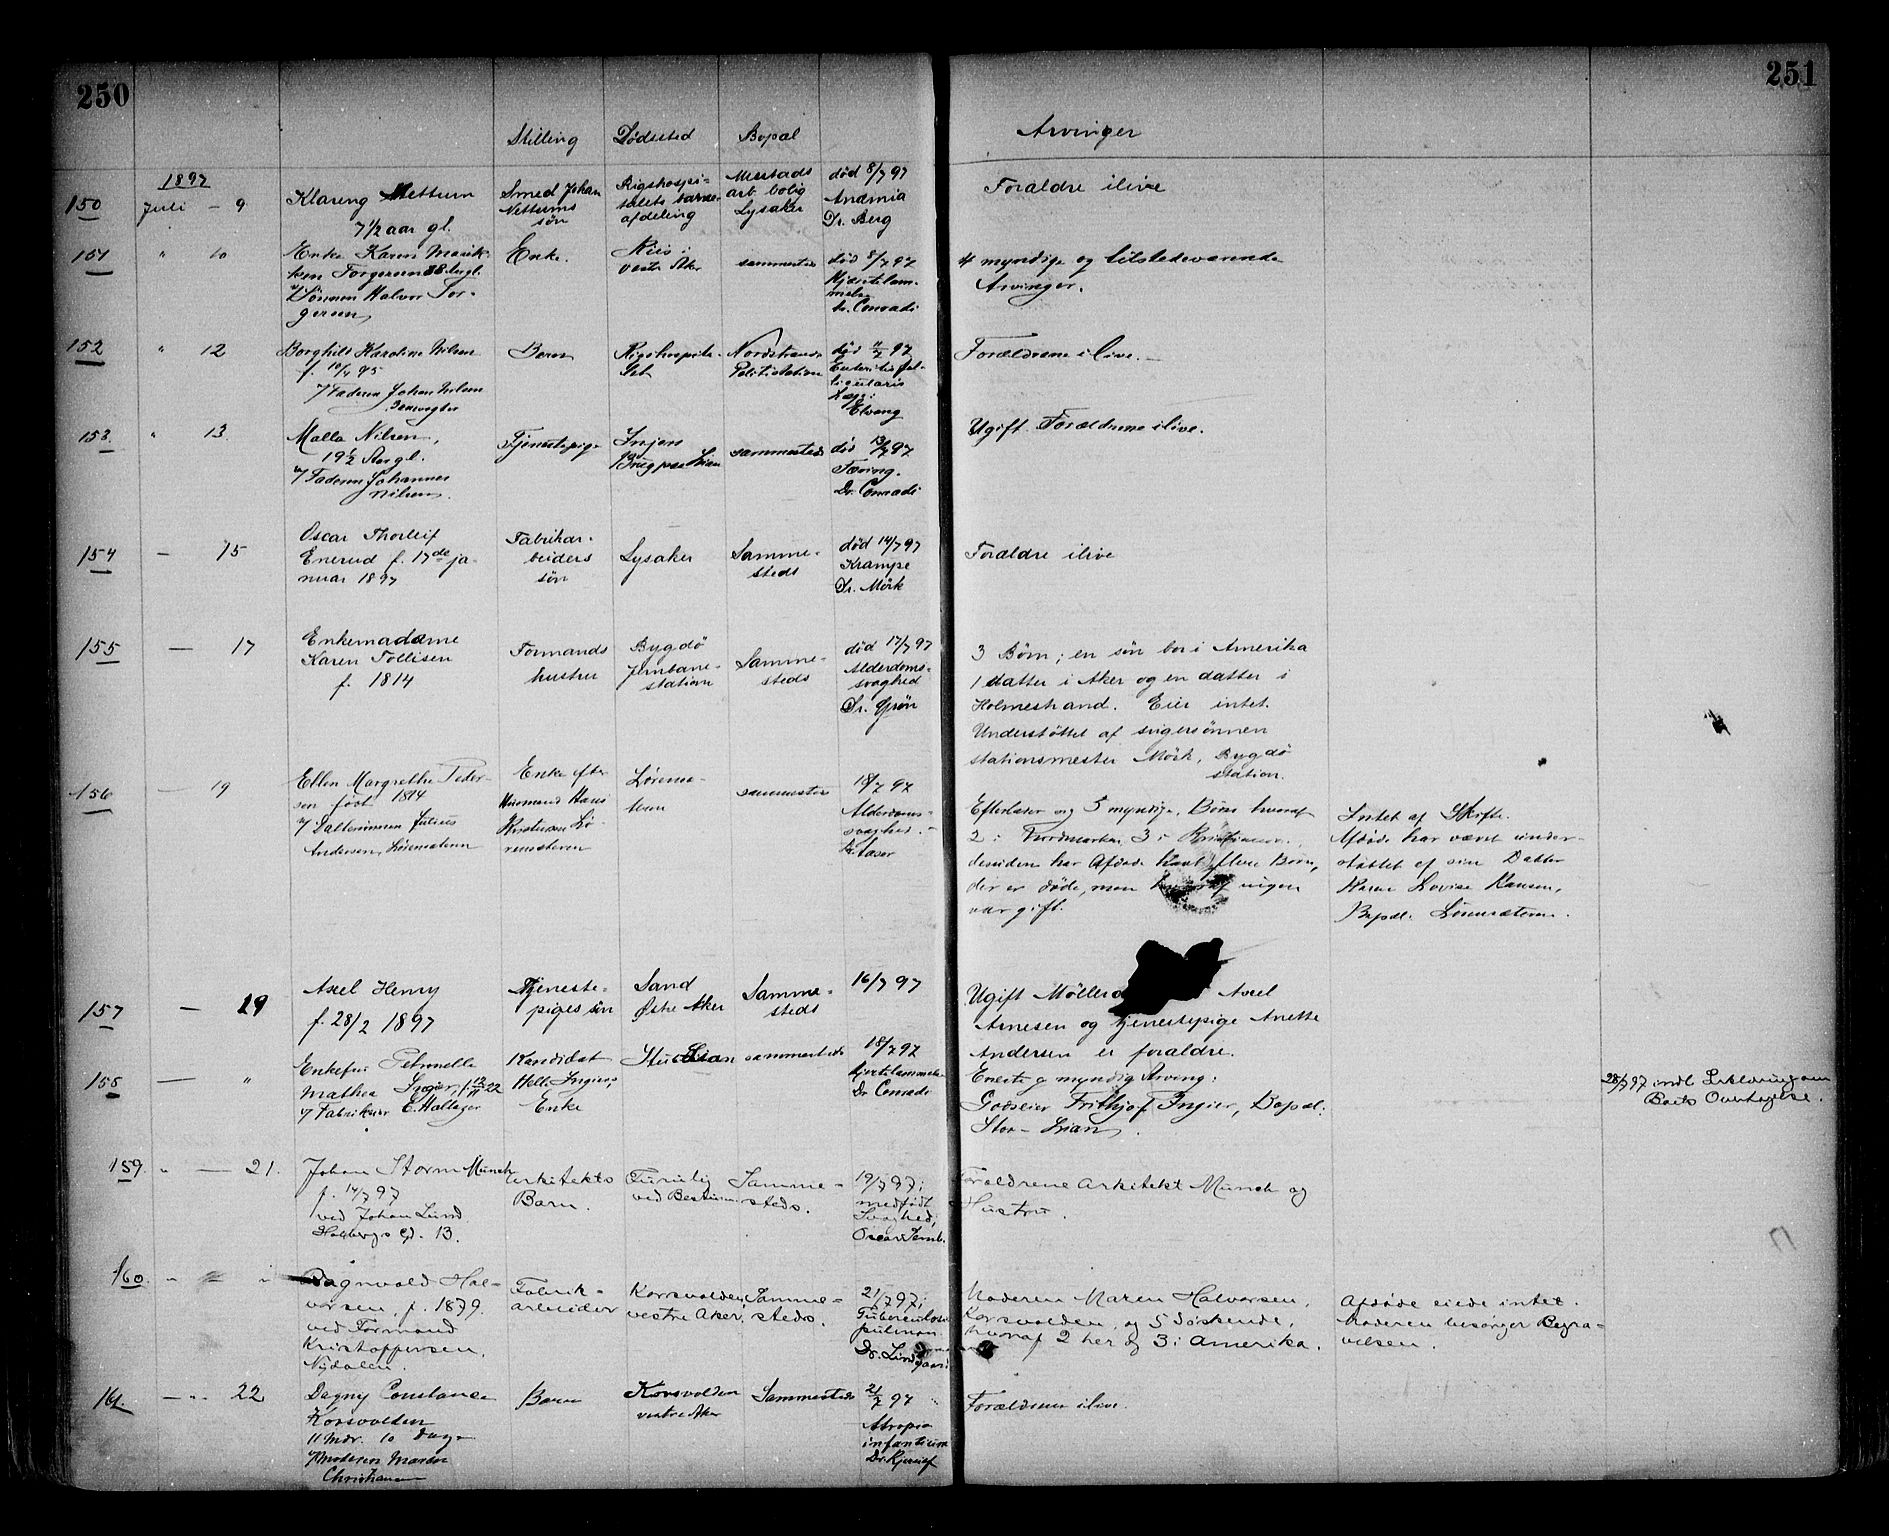 250
251
Stilling Dødssted Bopæl
Arvinger
1897
150 Juli - 9
Klareng Nettum
7 1/2 aar gl.
Smed Johan
Nettums
søn
Rigshospi-
talets barne-
afdeling
Mustads
arb. bolig
Lysaker
død 8/7 97
Anæmia
Dr. Berg
Forældre ilive
151 " 10
Enke Karen Marik-
ken Torgersen 88 år gl.
v/ Sønnen Halvor Tor-
gersen
Enke.
Riis i
vestre Aker
sammesteds
død 8/7 97
Hjertelam-
melse
Dr. Conradi
4 myndige og tilstedeværende
Arvinger.
152 " 12
Borghild Karoline Nilsen
f. 10/4 95
v/ Faderen Johan Nilsen
Banevogter
Barn
Rigshospita-
let
Nordstrands
Politistation
død 11/7 97
Enteritis fol-
licularis
Læge:
Elvang
Forældrene ilive.
153. " 13.
Malla Nilsen,
19 1/2 Aar gl.
v/ Faderen Johannes
Nilsen.
Tjenestepige
Injer
Brug paa Lian
sammesteds
død 13/7 97
Tæring.
Dr. Conradi
Ugift. Forældrene ilive.
154 - 15
Oscar Thorleif
Enerud f. 17de ja-
nuar 1897
Fabrikar-
beiders
søn
Lysaker
Samme-
steds
død 14/7 97
Krampe
Dr. Mörk
Forældre ilive
155 - 17
Enkemadame
Karen Tollisen
f. 1814
Formands
hustru
Bygdö
Jernbane-
station
Samme-
steds
død 17/7 97
Alderdoms-
svaghed
Dr. Grön
3 Børn; en søn bor i Amerika
1 datter i Aker og en datter i
Holmestrand. Eier intet.
Understøttet af svigersønnen
stationsmester Mörk, Bygdö
station.
156 - 19
Ellen Margrethe Peder-
sen født 1814
v/ Dattersønnen Julius
Andersen, Lørensteren
Enke efter
Husmand Hans
Kristensen Lø-
rensteren
Lørens-
teren
sammesteds
18/7 97
Alderdoms-
svaghed.
Dr. Laser
Efterlader sig 5 myndige Børn hvoraf
2 i Nordmarken, 3 i Kristiania.
desuden har Afdøde havt flere Børn,
der er døde, men hvoraf ingen
var gift.
Intet af Skifte.
Afdøde har været under-
støttet af sin Datter
Karen Lovise Hansen,
Bopæl: Lørensteren.
157 - 19
Axel Henry
f. 28/2 1897
Tjeneste-
piges søn
Sand
Østre Aker
Samme-
steds
16/7 97
Ugift Möller Axel
Arnesen og tjenestepige Anette
Andersen er forældre.
158 - "
Enkefru Petronelle
Mathea Ingier, f. 12/11 22
v/ Fabrikeier C. Hallager
Kandidat
Ingiers
Enke
Stu Lian
sammesteds
18/7 97
Hjertelammelse
Dr Conradi
Eneste og myndig Arving:
Godseier Frithjof Ingier, Bopæl:
Stor-Lian.
28/7 97 indl Erklæring om
Boets Overtagelse.
159. " - 21.
Johan Storm Munch
f. 14/7 97
ved Johan Lund
Holbergs Gd. 13.
Arkitekts
Barn.
Furuly
ved Bestum
Samme-
steds.
19/7 97;
medfødt
Svaghed;
Oscar Jemb.
Forældrene Arkitekt Munch og
Hustru.
160. " - "
Dagnvald Hal-
vorsen, f. 1879.
ved Formand
Kristoffersen,
Nydalen.
Fabrik-
arbeider
Korsvolden
vestre Aker,
Samme-
steds.
21/7 97;
Tuberculosis
pulmon.
Dr. Lindgaard
Moderen Maren Halvorsen,
Korsvolden, og 5 Søskende,
hvoraf 2 her og 3 i Amerika.
Afdøde eiede intet.
Moderen besørger Begra-
velsen.
161. - " 22
Dagny Constance
Korsvolden
11 Mdr. 10 Dage
v/ Moderen Marthe
Christiansen
Barn
Korsvolden
vestre Aker
Sammesteds
21/7 97
Atropia
infantium
Dr. Kjerulf
Forældrene ilive.